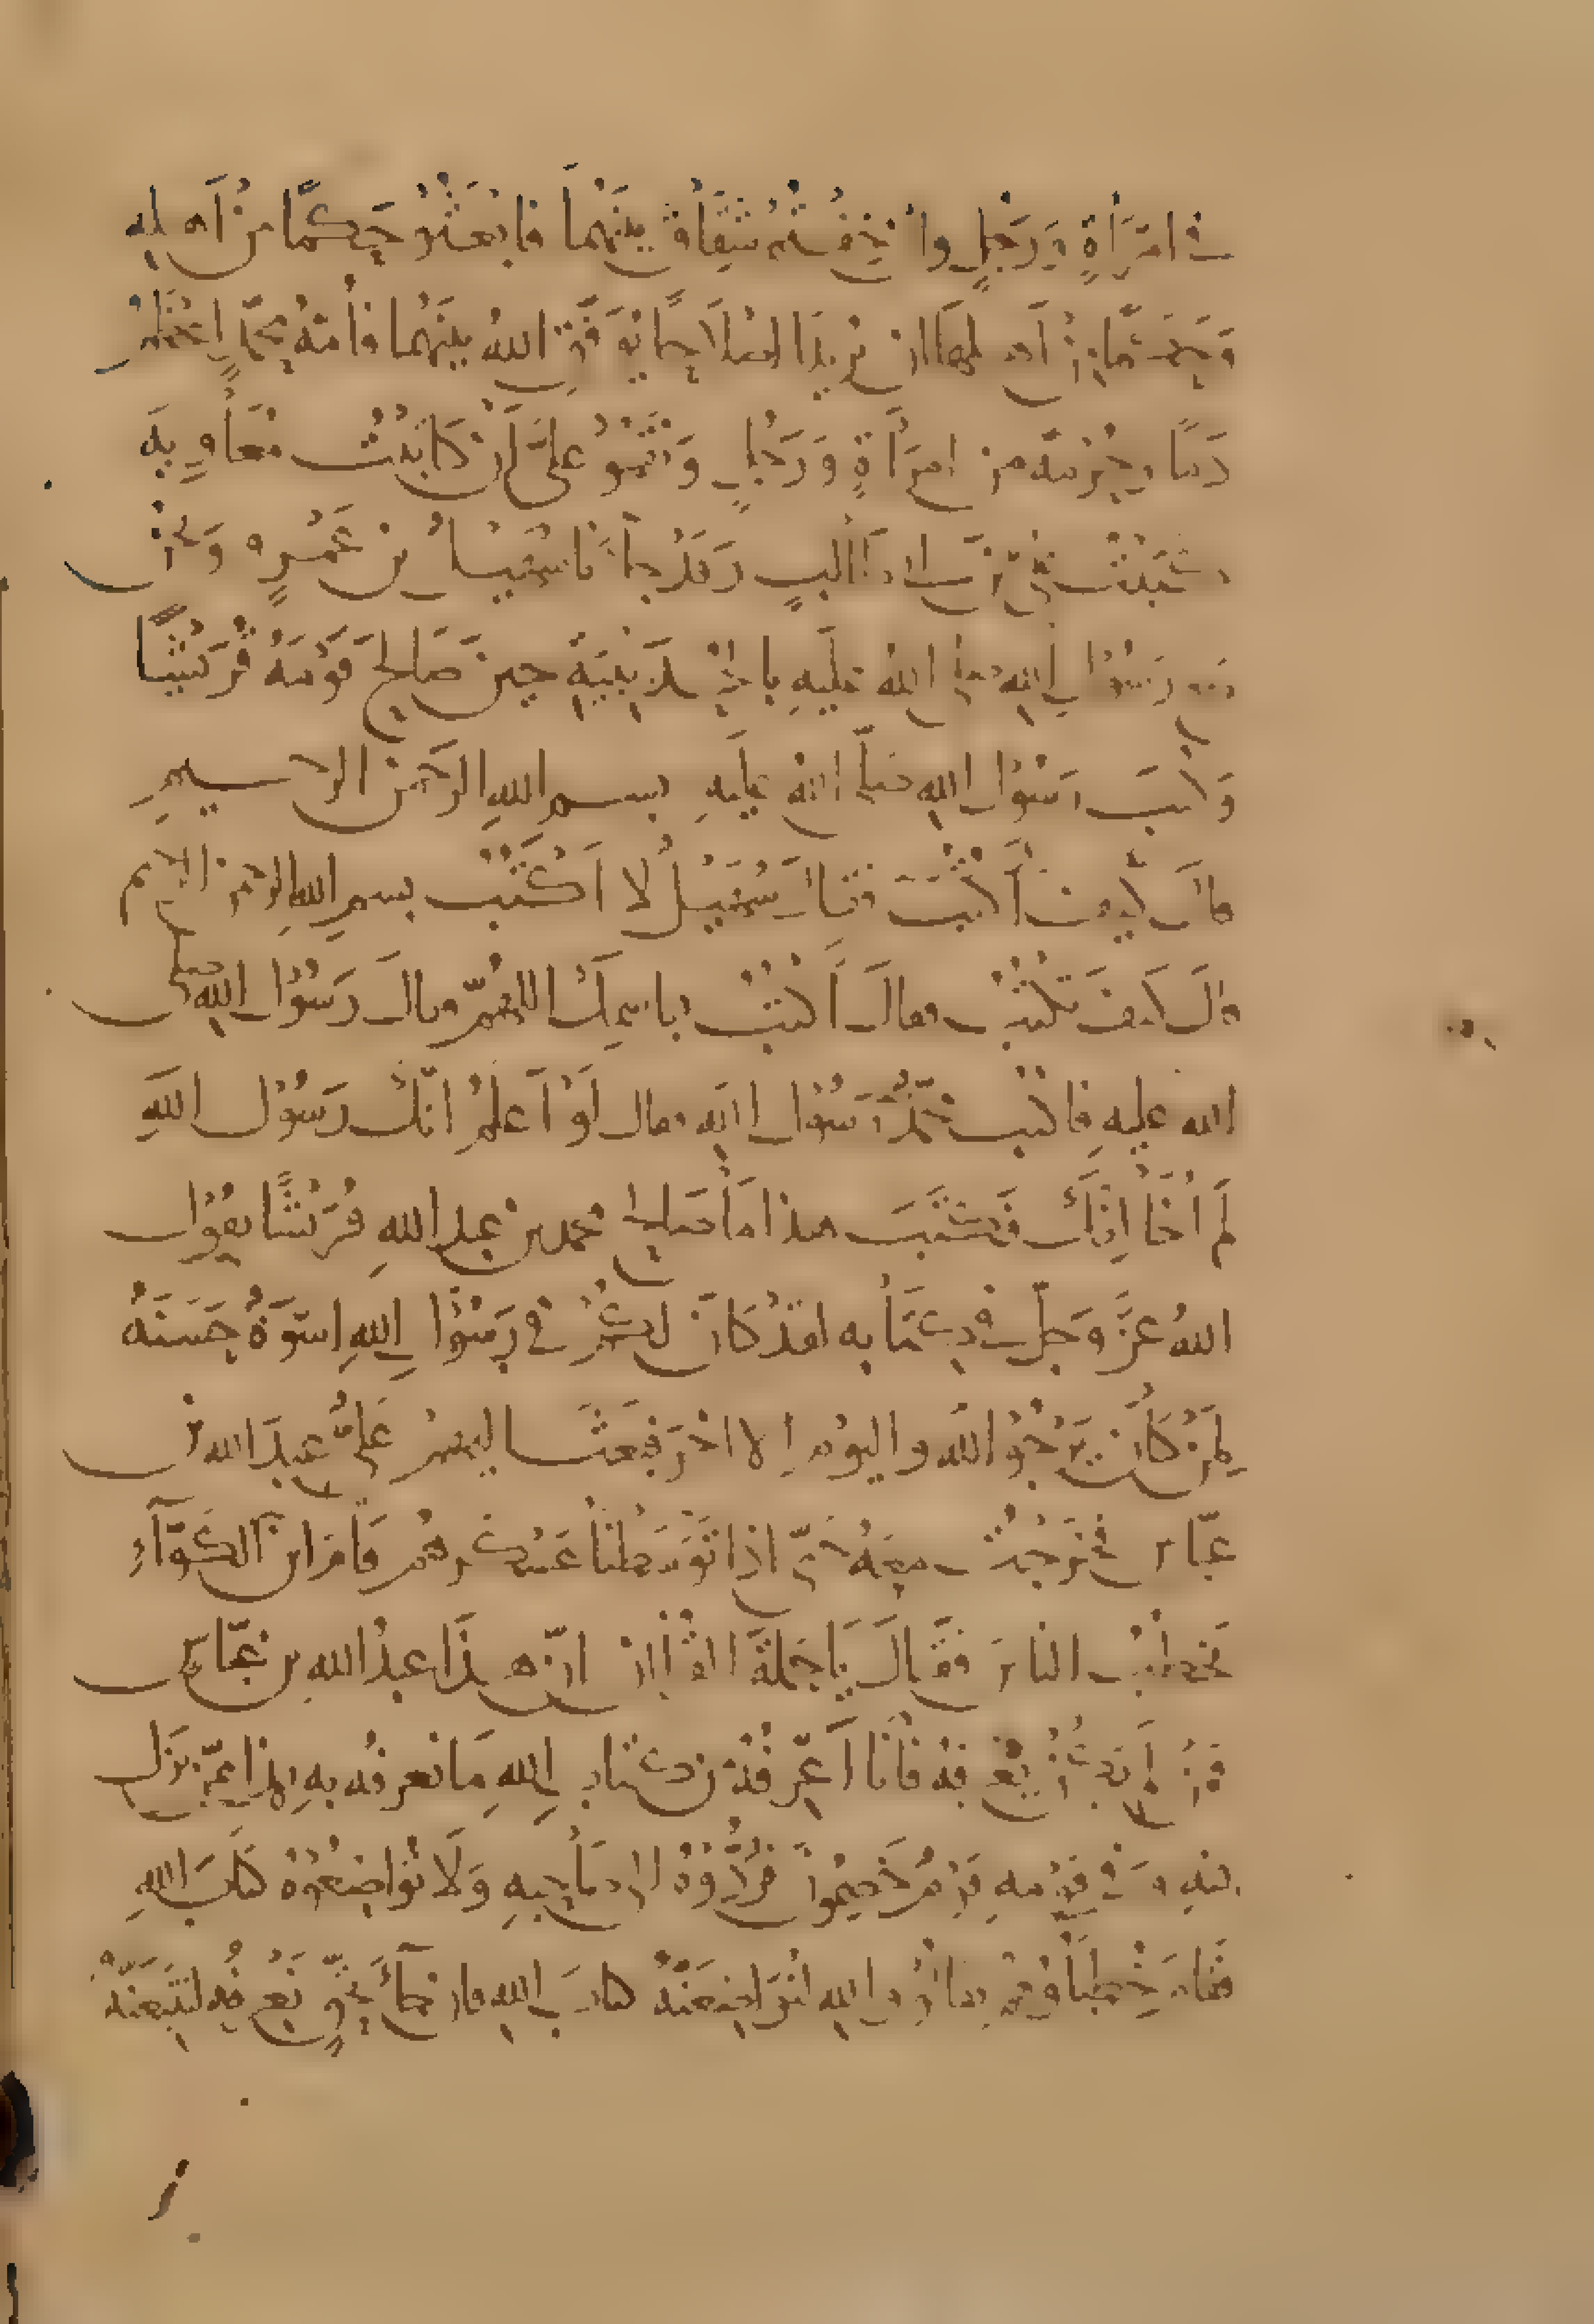 في امْرَأَةٍ وَرَجُلٍ وإنْ خِفْتُمْ شِقَاقَ بَيْنَهُمَا فَابْعَثُوْا حَكَمًا مِنْ أَهْلِهِ
وَحَكَمًا مِنْ أَهْلِهَا ان يُرِيْدَا اصْلَاحًا يُوَفِّقِ اللهُ بينَهُمَا فَأُمَّةُ مُحمَّدٍ اعْظَمُ
دَمًا وحُرْمَةً من امرَأَةٍ وَرَجُلٍ وَنَقَمُوْا عَلَيَّ أنْ كَاتَبْتُ مُعَاوِيَةَ
كتبْتُ عَلِيُّ بْنُ ابي طَالبٍ وَقَدْ جاءَنَا سُهَيْلُ بن عَمْرٍو وَنحنُ
مع رَسُوْلِ اللهِ صلى اللهُ عَلَيهِ بالحُدَيْبِيَةِ حِينَ صَالحَ قَوْمَهُ قُرَيْشًا
وَكتبَ رَسُوْل اللهِ صَلّى اللهُ عليهِ بسم اللهِ الرحمن الرحيمِ
قالَ كيف أَكْتُبُ فقالَ سُهَيْلُ لا اَكْتُبْ بسمِ اللهِ الرحمن الرحيم
قالَ كَيفَ تكْتُبُ فقالَ أَكْتُبُ باسمِكَ اللهُمّ فقالَ رَسُوْل اللهِ صلى
الله عليهِ فاكْتُبْ مُحَمَّدٌ رَسُوْل اللهِ فقال لَوْ أَعلَمُ انّكَ رَسُوْل اللهِ
لَمْ اُخَالِفْكَ فَكَتَبَ هذا مَا صَالحَ محمد بن عبد اللهِ قُرَيْشًا يقُوْل
اللهُ عَزَّ وَجَلّ في كِتَابه لقدْ كَانَ لكُمْ في رَسُوْلِ اللهِ اسْوَةٌ حَسَنَةٌ
لِمَنْ كَانَ يَرْجُوا اللهَ واليَوْمَ الاخرَ فبَعَثَ اليهمْ عَليٌّ عبدَ الله بن
عبّاس فخَرَجْتُ معَهُ حَتّى اذا تَوَسَّطْنَا عَسْكَرهُمْ قَامَ ابن الكَوَّآءِ
يخطُبُ الناسَ فقَالَ يَا حَمَلَةَ القُرْآن انّ هذَا عبدُ اللهِ بن عَبّاس
فمَنْ لَمْ يَكُنْ يَعْرِفُهُ فَأَنَا اُعَرِّفُهُ من كتاب اللهِ مَا نعرفُه بهِ هذا مِمّن نزَل
فيهِ وَفي قَوْمهِ قَوْمٌ خَصِمُوْنَ فَرُدُّوْهُ الى صَاحِبهِ وَلَا تُوَاضِعُوْهُ كتَابَ اللهِ
فقَامَ خُطَبَاؤُهُمْ فقالُوْا واللهِ لنُوَاضِعَنَّهُ كتابَ اللهِ فان جَآءَ بحَقٍّ نَعْرِفُه لنتّبِعَنَّهُ